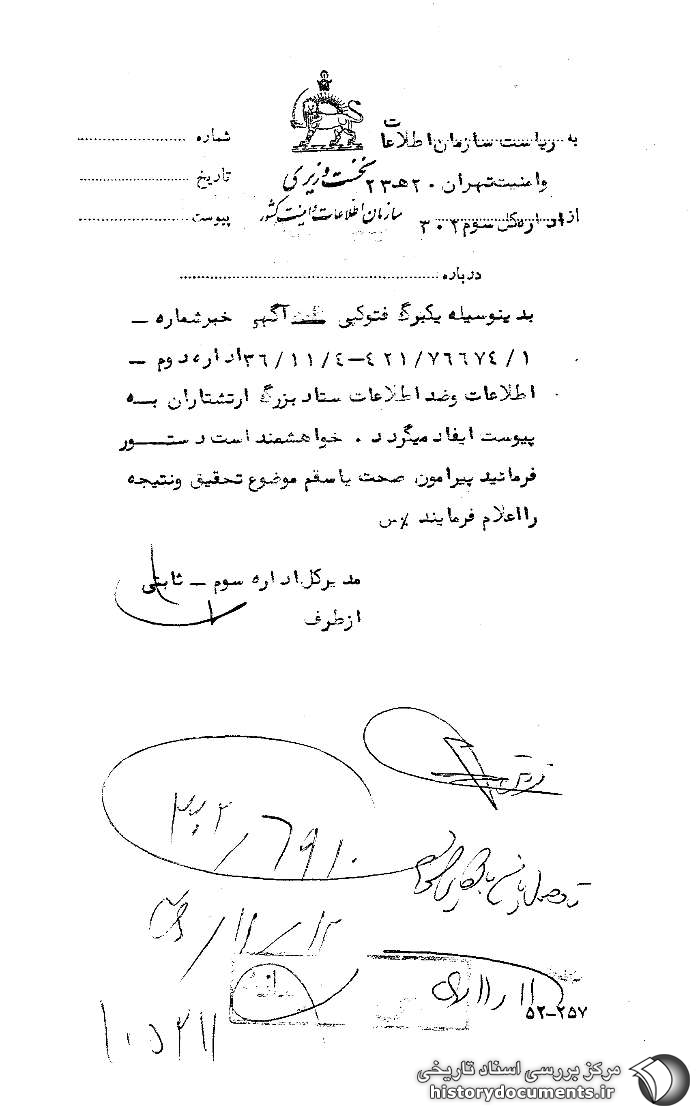 به ریاست سازمان اطلاعات
وامنیت تهران ۲۰هـ۲۳
از اداره کل سوم ۳۰۲
نخست وزیری
سازمان اطلاعات و امنیت کشور
شماره
تاریخ
پیوست
درباره
بدینوسیله یکبرگ فتوکپی آگهی خبرشماره –
۳۶/۱۱/۴–۴۲۱/۷۶۶۷۴/۱ اداره دوم –
اطلاعات وضد اطلاعات ستاد بزرگ ارتشتاران به
پیوست ایفاد میگردد . خواهشمند است دستور
فرمائید پیرامون صحت یاسقم موضوع تحقیق ونتیجه
رااعلام فرمایند
مدیرکل اداره سوم – ثابتی
ازطرف
۳۰۲/۶۹۱۰
۱۱/۱۲
۵۲–۲۵۷
مرکز بررسی اسناد تاریخی
historydocuments.ir